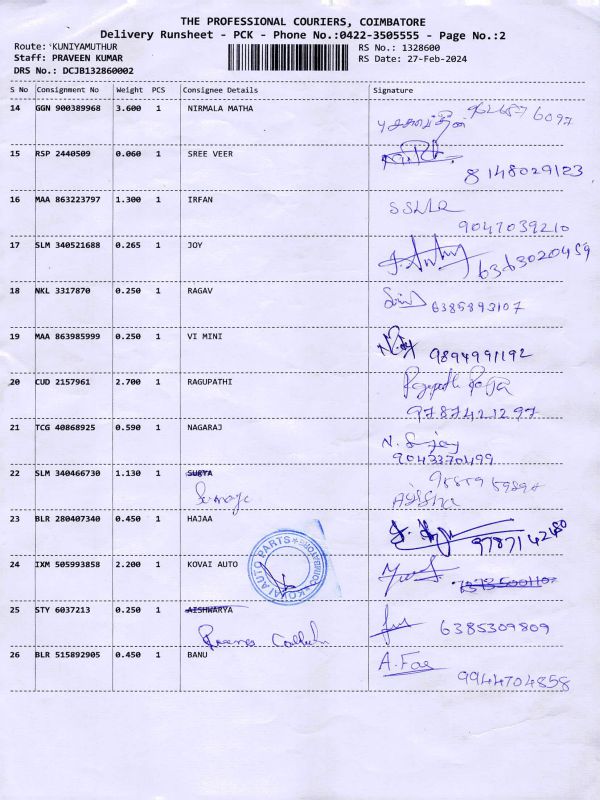 THE PROFESSIONAL COURIERS, COIMBATORE
Delivery Runsheet - PCK - Phone No.:0422-3505555 - Page No.:2
Route: KUNIYAMUTHUR
Staff: PRAVEEN KUMAR
DRS No.: DCJB132860002
RS No.: 1328600
RS Date: 27-Feb-2024
S No Consignment No Weight PCS Consignee Details Signature
14 GGN 900389968 3.600 1 NIRMALA MATHA
15 RSP 2440509 0.060 1 SREE VEER
8148029123
16 MAA 863223797 1.300 1 IRFAN
9047039210
17 SLM 340521688 0.265 1 JOY
6363020459
18 NKL 3317870 0.250 1 RAGAV
6385893107
19 MAA 863985999 0.250 1 VI MINI
9894991192
20 CUD 2157961 2.700 1 RAGUPATHI
Ragupathi Raja
9787421297
21 TCG 40868925 0.590 1 NAGARAJ
N. Sujay
9043370499
22 SLM 340466730 1.130 1 SURYA
AYISHA
23 BLR 280407340 0.450 1 HAJAA
24 IXM 505993858 2.200 1 KOVAI AUTO
KOVAI AUTO PARTS
25 STY 6037213 0.250 1 AISHWARYA
6385309809
26 BLR 515892905 0.450 1 BANU
A. Fae
9944704858